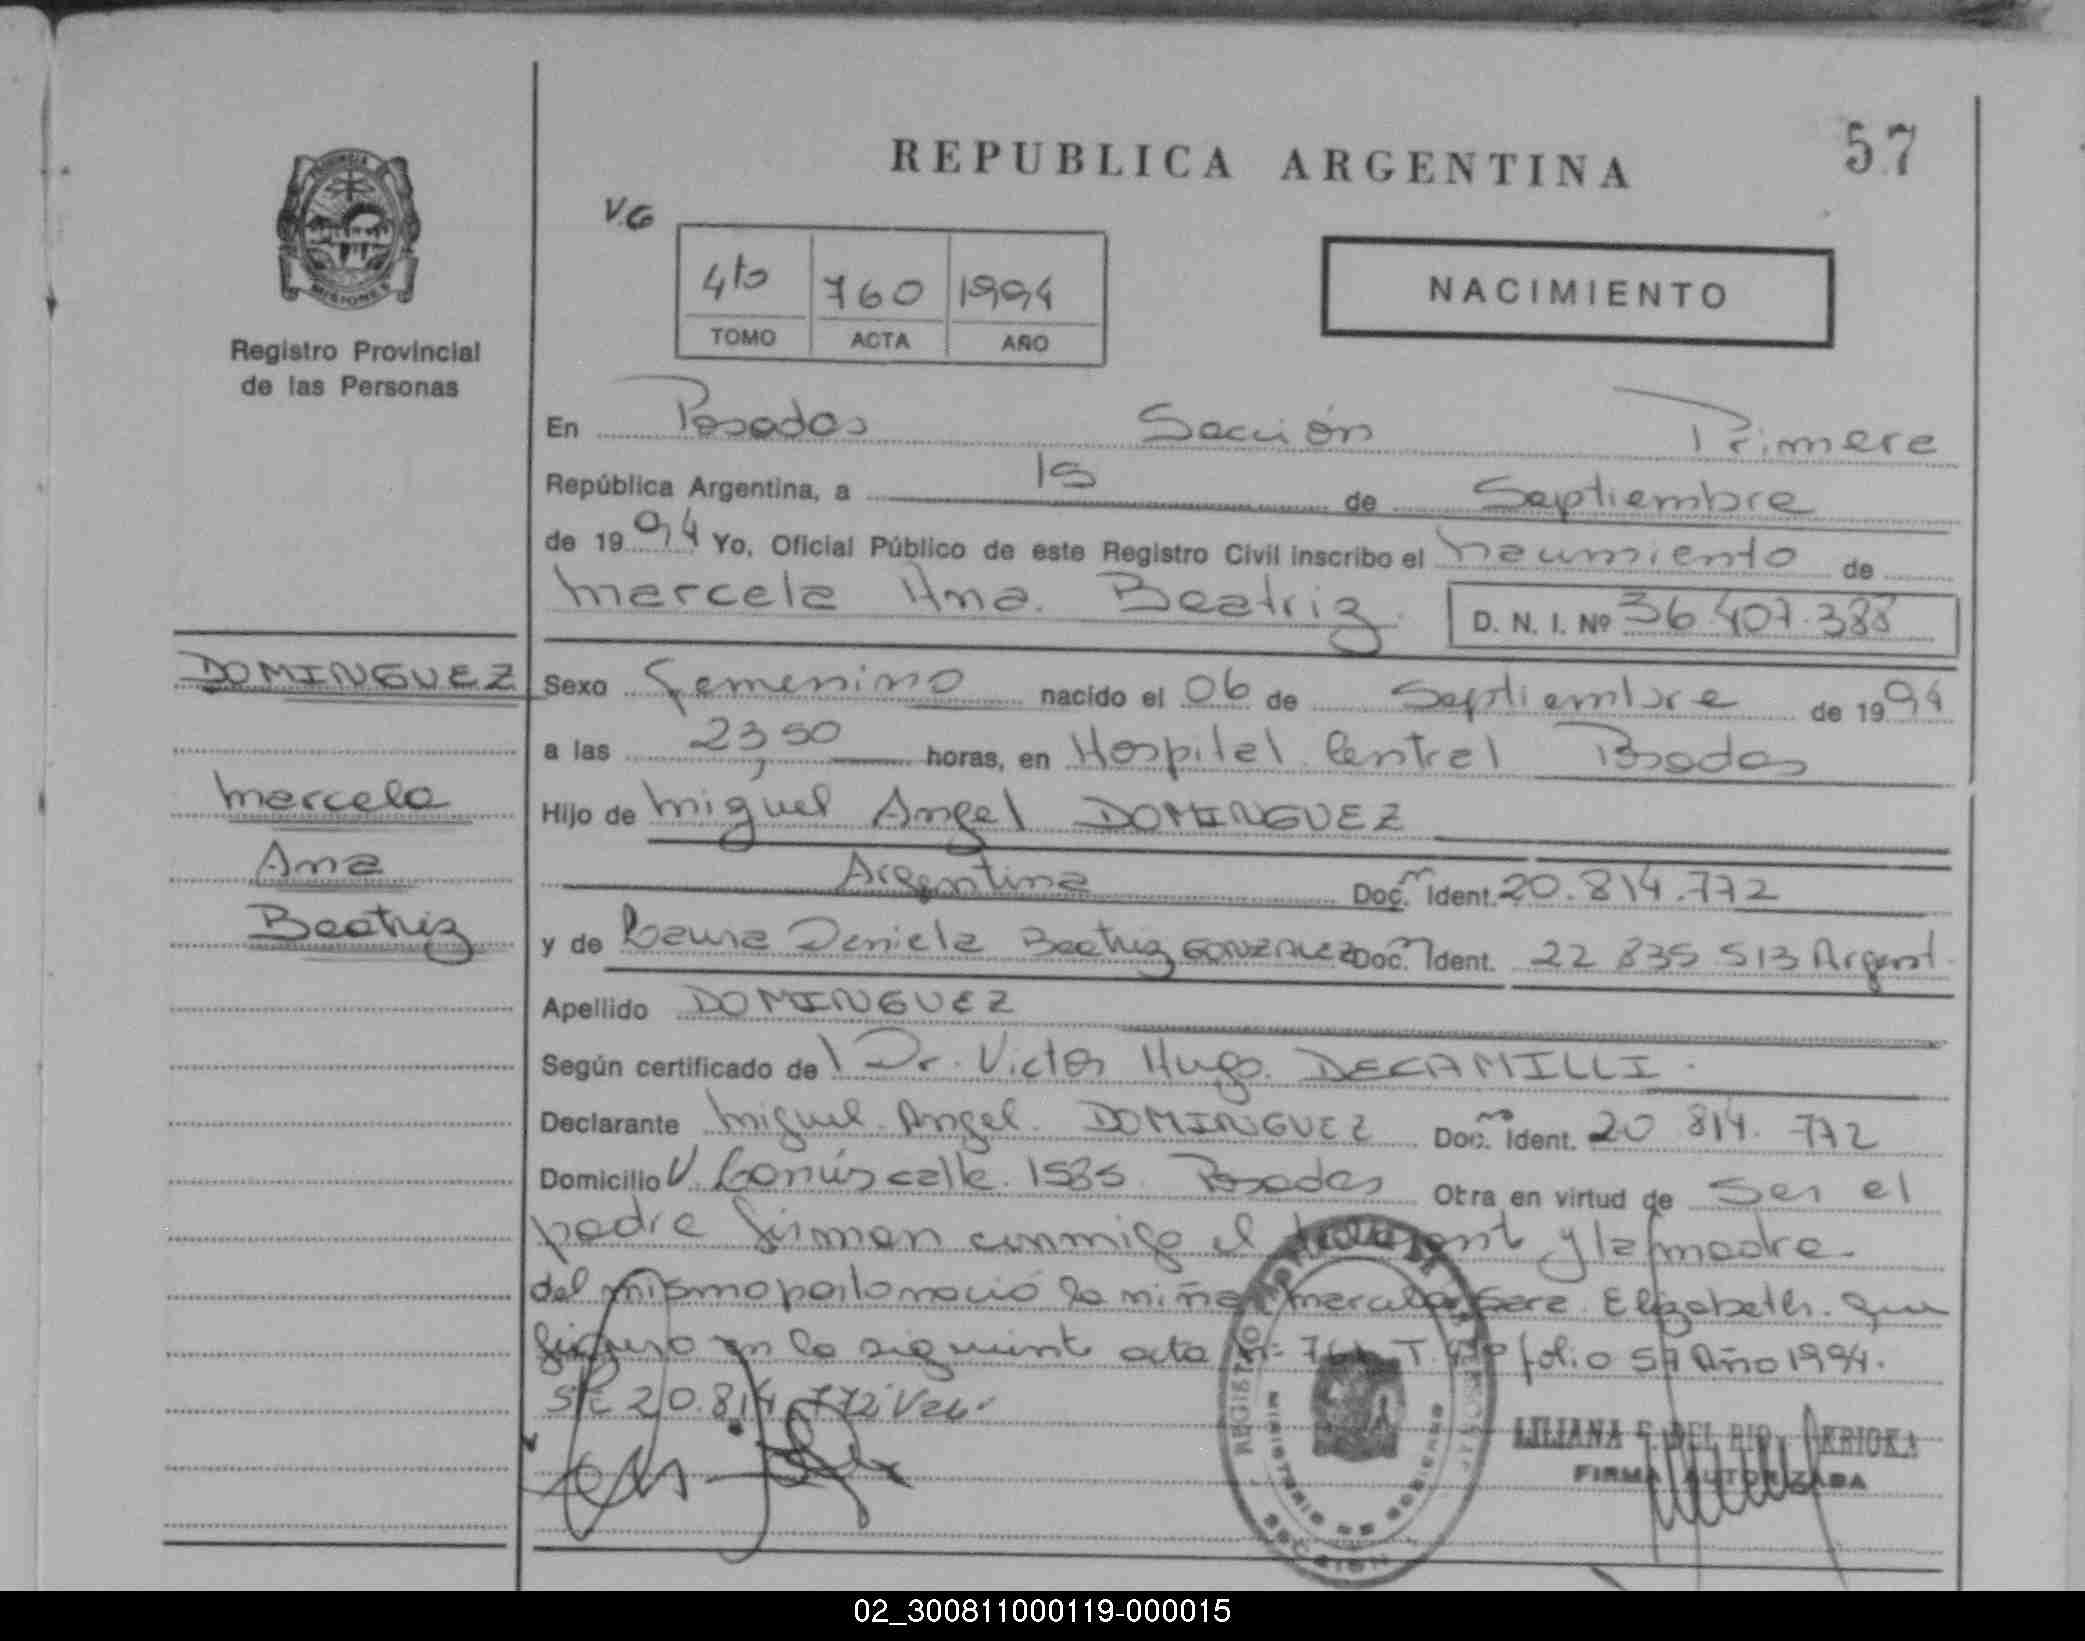 REPUBLICA ARGENTINA
57
V.G
4to 760 1994
TOMO ACTA AÑO
NACIMIENTO
MISIONES
Registro Provincial
de las Personas
En Posadas Sección Primera
República Argentina, a 15 de Septiembre
de 1994 Yo, Oficial Público de este Registro Civil inscribo el nacimiento de
Marcela Ana Beatriz D. N. I. Nº 36.407.388
DOMINGUEZ
Marcela
Ana
Beatriz
Sexo Femenino nacido el 06 de Septiembre de 1994
a las 23,50 horas, en Hospital Central Posadas
Hijo de Miguel Angel DOMINGUEZ
Argentina Doc. Ident. 20.814.772
y de Laura Daniela Beatriz GONZALEZ Doc. Ident. 22 835 513 Argent.
Apellido DOMINGUEZ
Según certificado del Dr. Victor Hugo DECAMILLI.
Declarante Miguel Angel DOMINGUEZ Doc. Ident. 20 814. 772
Domicilio V. Lanús calle 1585 Posadas Obra en virtud de ser el
padre firman conmigo el y la madre.
del mismo parto nació la niña Marcela Sara Elizabeth que
en la siguiente acta nº 761 T. 4to folio 57 Año 1994.
S/R 20.814.772 Vale.
LILIANA DEL RIO
FIRMA AUTORIZADA
REGISTRO
MINISTERIO DE GOBIERNO
SECCION
02_300811000119-000015